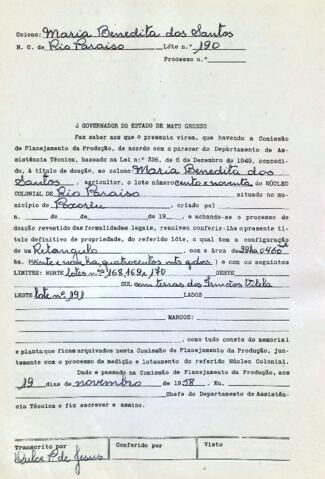 Colono: Maria Benedita dos Santos
N. C. de Rio Paraiso Lóte n.º 190
Processo n.º
O GOVERNADOR DO ESTADO DE MATO GROSSO
Faz saber aos que o presente virem, que havendo a Comissão
de Planejamento da Produção, de acordo com o parecer do Departamento de As-
sistência Técnica, baseado na Lei n.º 336, de 6 de Dezembro de 1949, concedi-
do, à título de doação, ao colono Maria Benedita dos
Santos, agricultor, o lote número cento e noventa do NÚCLEO
COLONIAL DE Rio Paraiso situado no mu-
nicípio de Poconéu, criado pel
n. de de de 19 , e achando-se o processo de
doação revestido das formalidades legais, resolveu conferir-lhe o presente tí-
tulo definitivo de propriedade, do referido lóte, o qual tem a configuração
de um Retangulo com a área de
ha. e com os seguintes
LIMITES: NORTE lotes nºs 168, 169 e 170 OESTE
SUL com terras dos Irmãos Vilela
LESTE lote nº 191 LADOS
MARCOS:
, como tudo consta do memorial
e planta que ficam arquivados nesta Comissão de Planejamento da Produção, jun-
tamente com o processo de medição e loteamento do referido Núcleo Colonial.
Dado e passado na Comissão de Planejamento da Produção, aos
19 dias de novembro de 1958. Eu.
Chefe do Departamento de Assistên-
cia Técnica o fiz escrever e assino.
Transcrito por Conferido por Visto
Dulce P. de Jesus